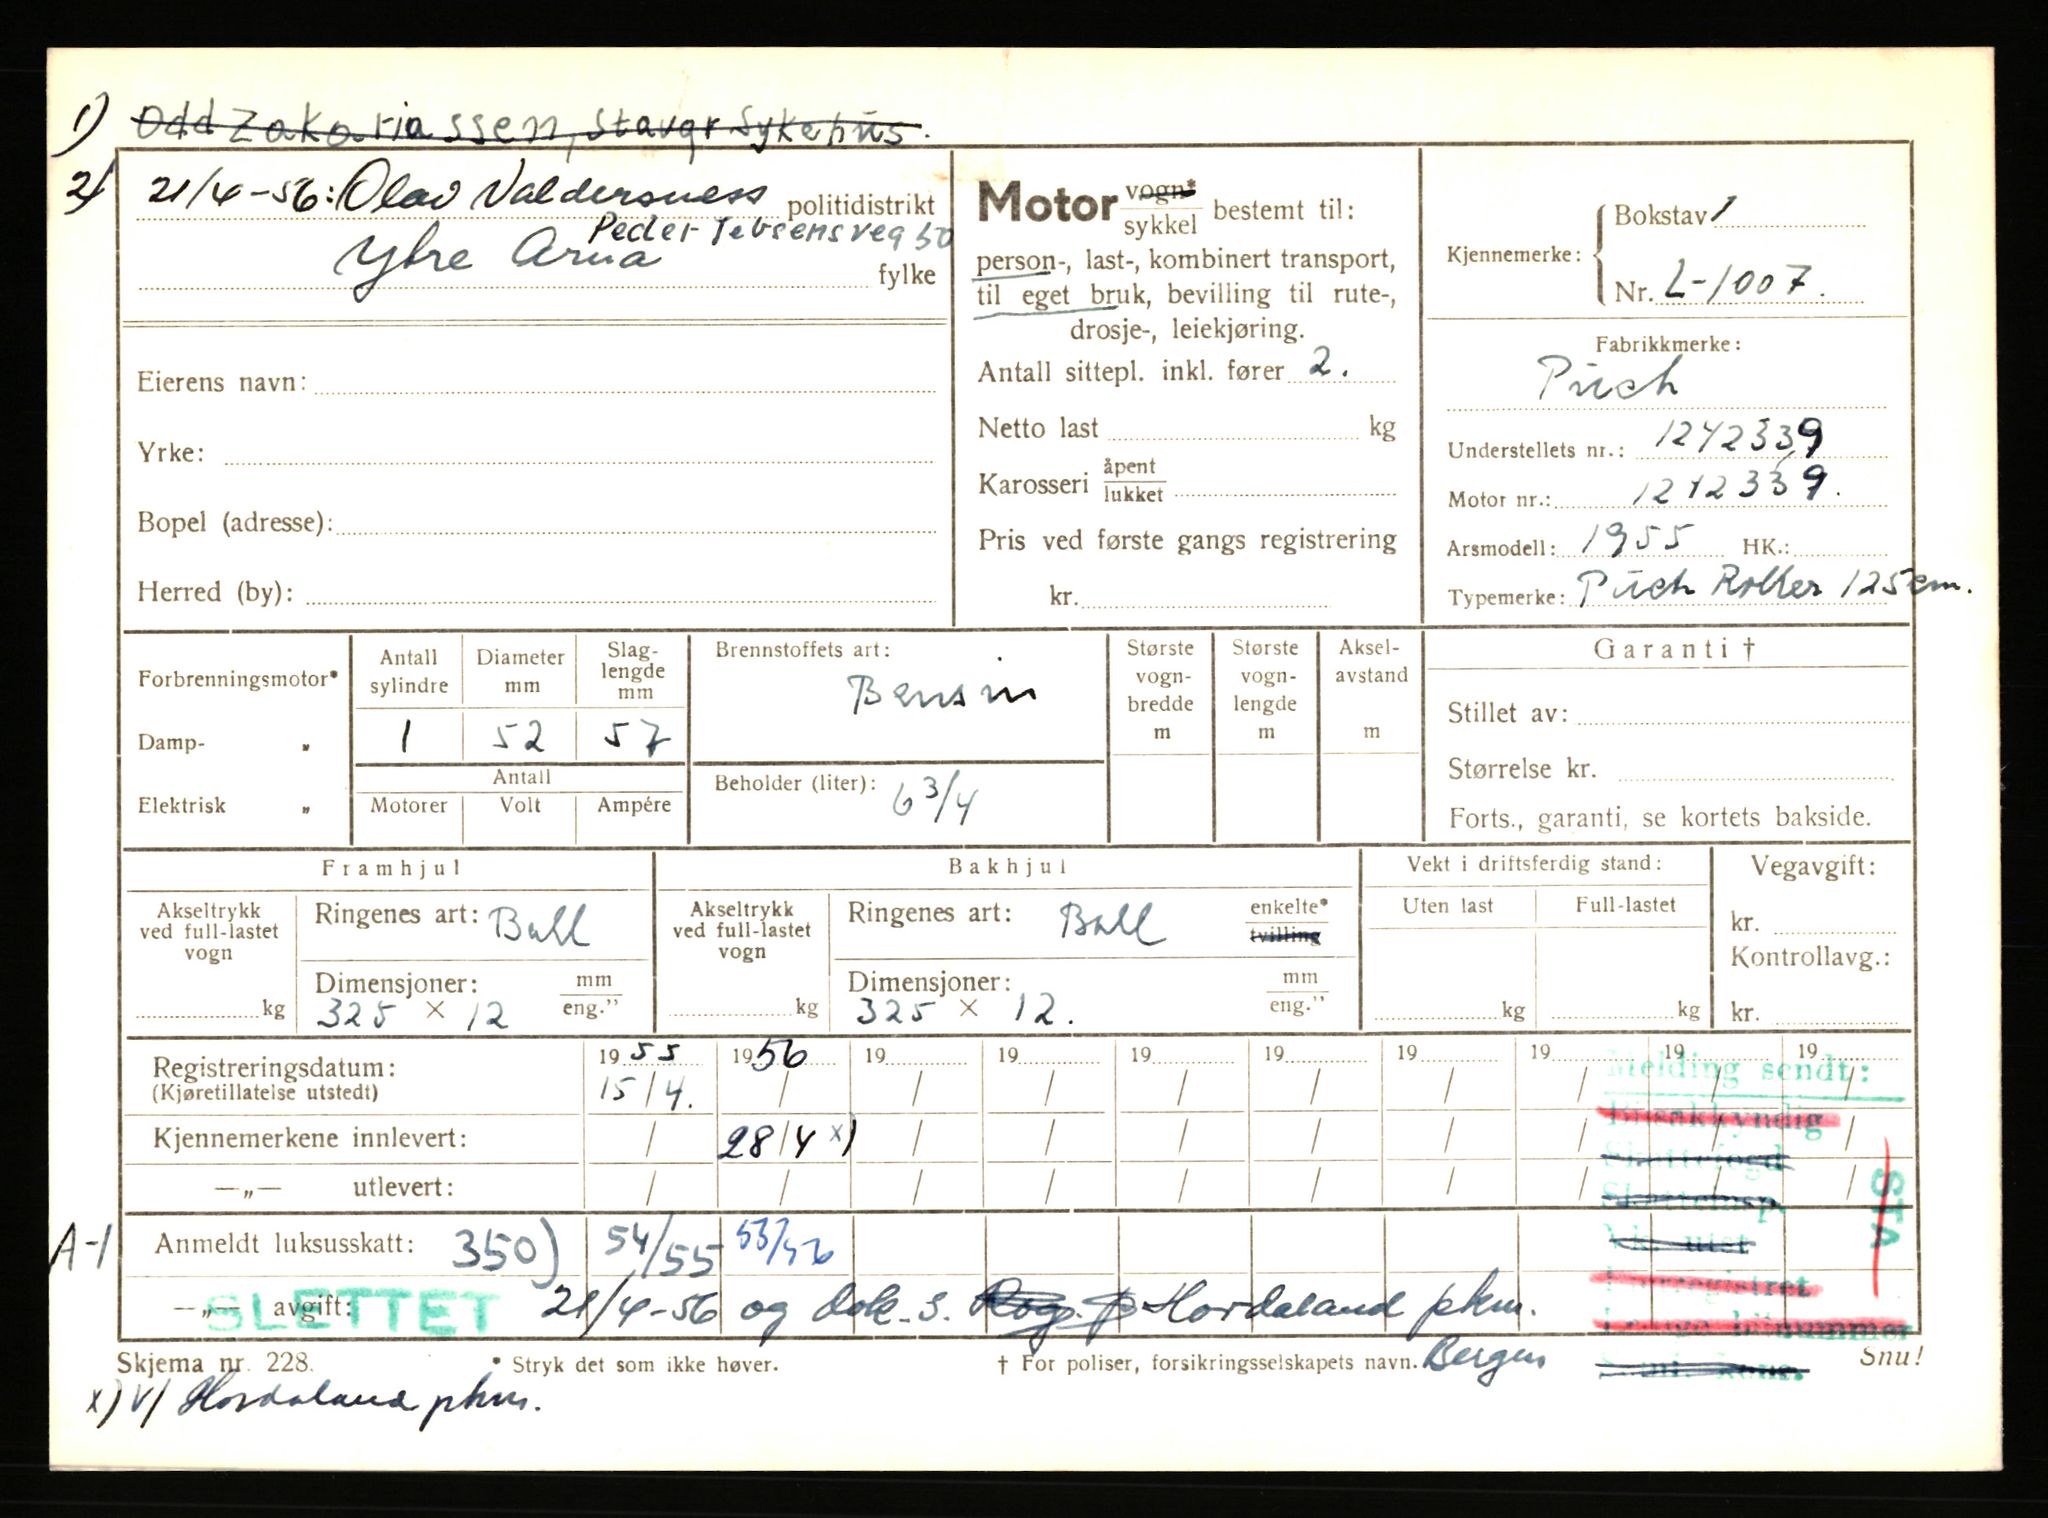 1) Odd Zakariassen, Stavgr Sykehus.
2) 21/4-56: Olav Valdersness politidistrikt
Peder Jebsensveg 50
Ytre Arna fylke
Eierens navn:
Yrke:
Bopel (adresse):
Herred (by):
Motor vogn* / sykkel bestemt til:
person-, last-, kombinert transport,
til eget bruk, bevilling til rute-,
drosje-, leiekjøring.
Antall sittepl. inkl. fører 2.
Netto last kg
Karosseri åpent / lukket
Pris ved første gangs registrering
kr.
Kjennemerke: Bokstav 1
Nr. L-1007.
Fabrikkmerke:
Puch
Understellets nr.: 1242339
Motor nr.: 1242339.
Arsmodell: 1955 HK.:
Typemerke: Puch Roller 125 cm.
Forbrenningsmotor*
Damp- „
Elektrisk „
Antall sylindre
1
Diameter mm
52
Slaglengde mm
57
Antall
Motorer Volt Ampére
Brennstoffets art:
Bensin
Beholder (liter): 6 3/4
Største vognbredde m
Største vognlengde m
Akselavstand m
Garanti †
Stillet av:
Størrelse kr.
Forts., garanti, se kortets bakside.
Framhjul
Akseltrykk ved full-lastet vogn
kg
Ringenes art: Ball
Dimensjoner: mm / eng.”
325 × 12
Bakhjul
Akseltrykk ved full-lastet vogn
kg
Ringenes art: Ball enkelte* / tvilling
Dimensjoner: mm / eng.”
325 × 12.
Vekt i driftsferdig stand:
Uten last Full-lastet
kg kg
Vegavgift:
kr.
Kontrollavg.:
kr.
Registreringsdatum: 1955 1956 19 19 19 19 19 19 19 19
(Kjøretillatelse utstedt) 15/4. / / / / / / / / /
Kjennemerkene innlevert: / 28/4 x) / / / / / / / /
—„— utlevert: / / / / / / / / / /
A-1 Anmeldt luksusskatt: 350) 54/55 53/56
—„— avgift: 21/4-56 og dok. s. Rog. p Hordaland pkm.
SLETTET
Melding sendt:
Bilsakkyndig
Skattefogd
Skatteinsp.
STA
Skjema nr. 228. * Stryk det som ikke høver. † For poliser, forsikringsselskapets navn. Bergen Snu!
x) V/ Hordaland pkm.